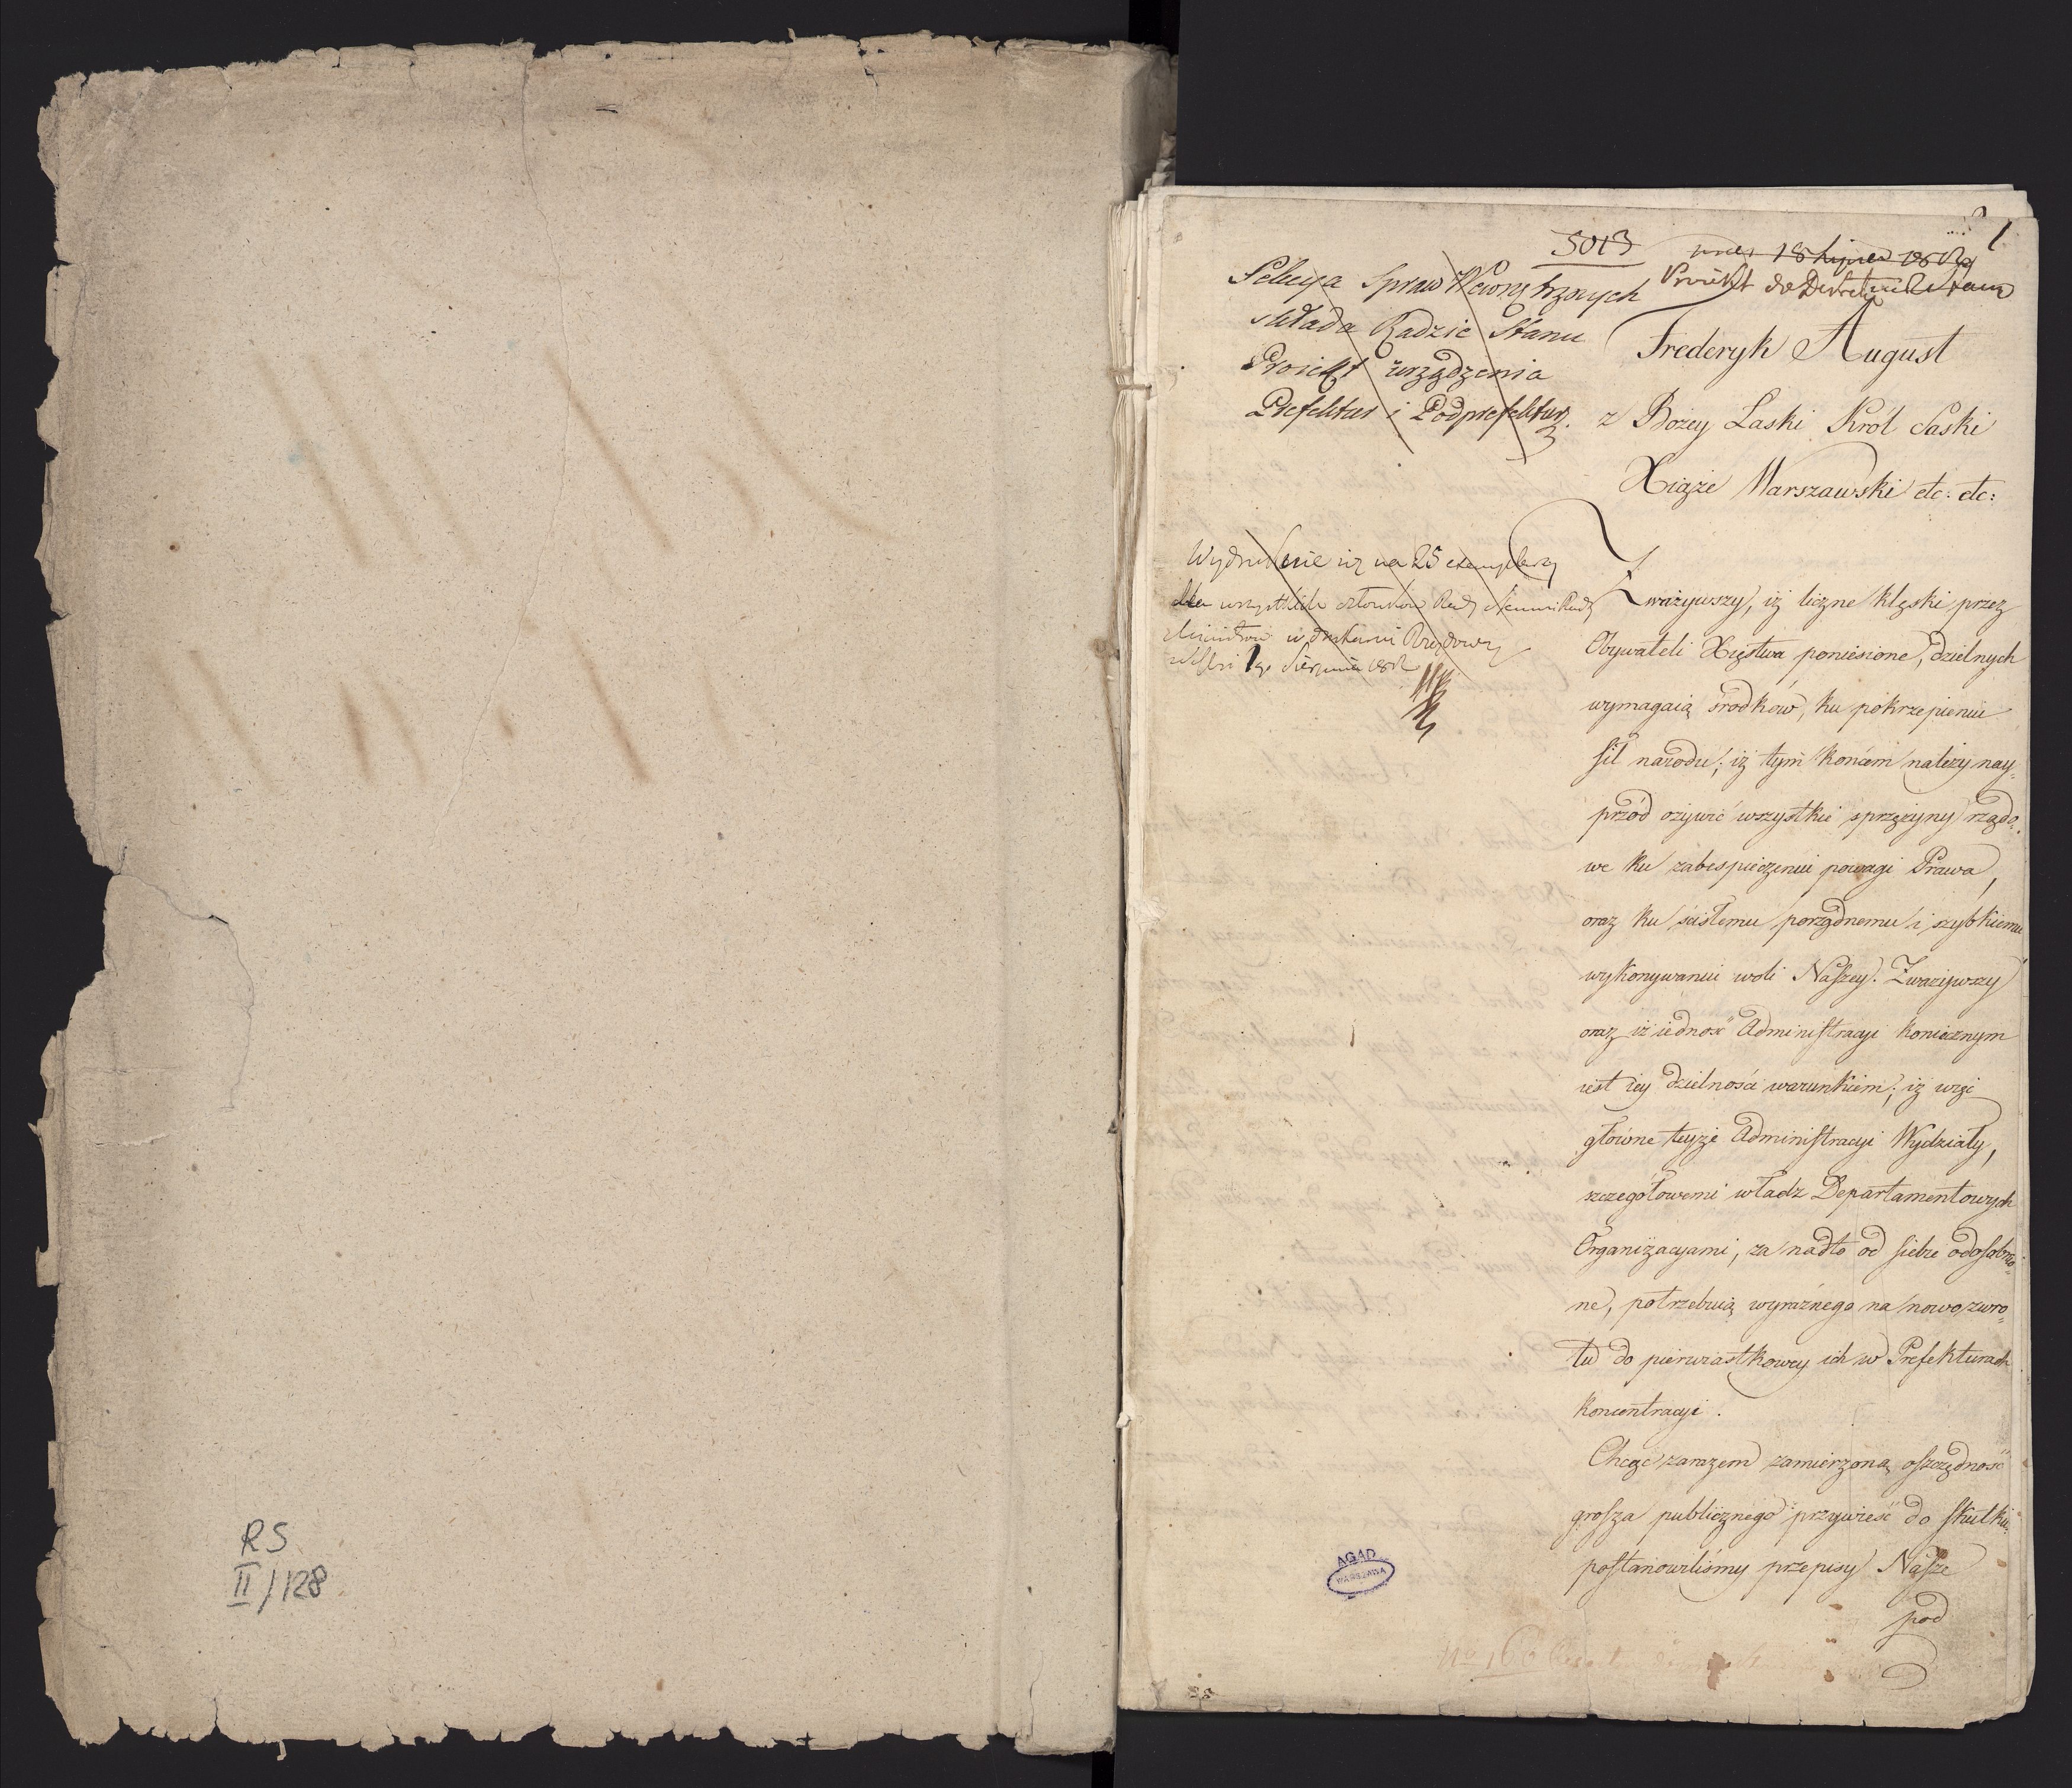 RS
II/128
1
5013
18 Lipca 1808
Proiekt do Dekretu
Sekcya Spraw Wewnętrznych
składa Radzie Stanu
Proiekt urządzenia
Prefektur i Podprefektur.
Frederyk August
z Bożey Łaski Król Saski
Xiąże Warszawski etc: etc:
na 25 exemplarzy
dla wszystkich członków Rady Stanu i Rady
Ministrów w drukarni Rządowey
1go Sierpnia
Zważywszy, iż liczne klęski, przez
Obywateli Xięstwa poniesione, dzielnych
wymagaią środków, ku pokrzepieniu
sił narodu; iż tym końcem należy nay-
przód ożywić wszystkie sprężyny rządo-
we ku zabespieczeniu powagi Prawa,
oraz ku ścisłemu porządnemu i szybkiemu
wykonywaniu woli Naszey. Zważywszy
oraz iż iedność Administracyi koniecznym
iest iey dzielności warunkiem; iż
główne teyże Administracyi Wydziały,
szczegółowemi władz Departamentowych
Organizacyami, za nadto od siebie odosabnio-
ne, potrzebuią wyraźnego na nowo zwro-
tu do pierwiastkowey ich w Prefekturach
koncentracyi.
Chcąc zarazem zamierzoną oszczędność
grosza publicznego przywieść do skutku,
postanowiliśmy przepisy Nasze
pod
AGAD
WARSZAWA
No 166